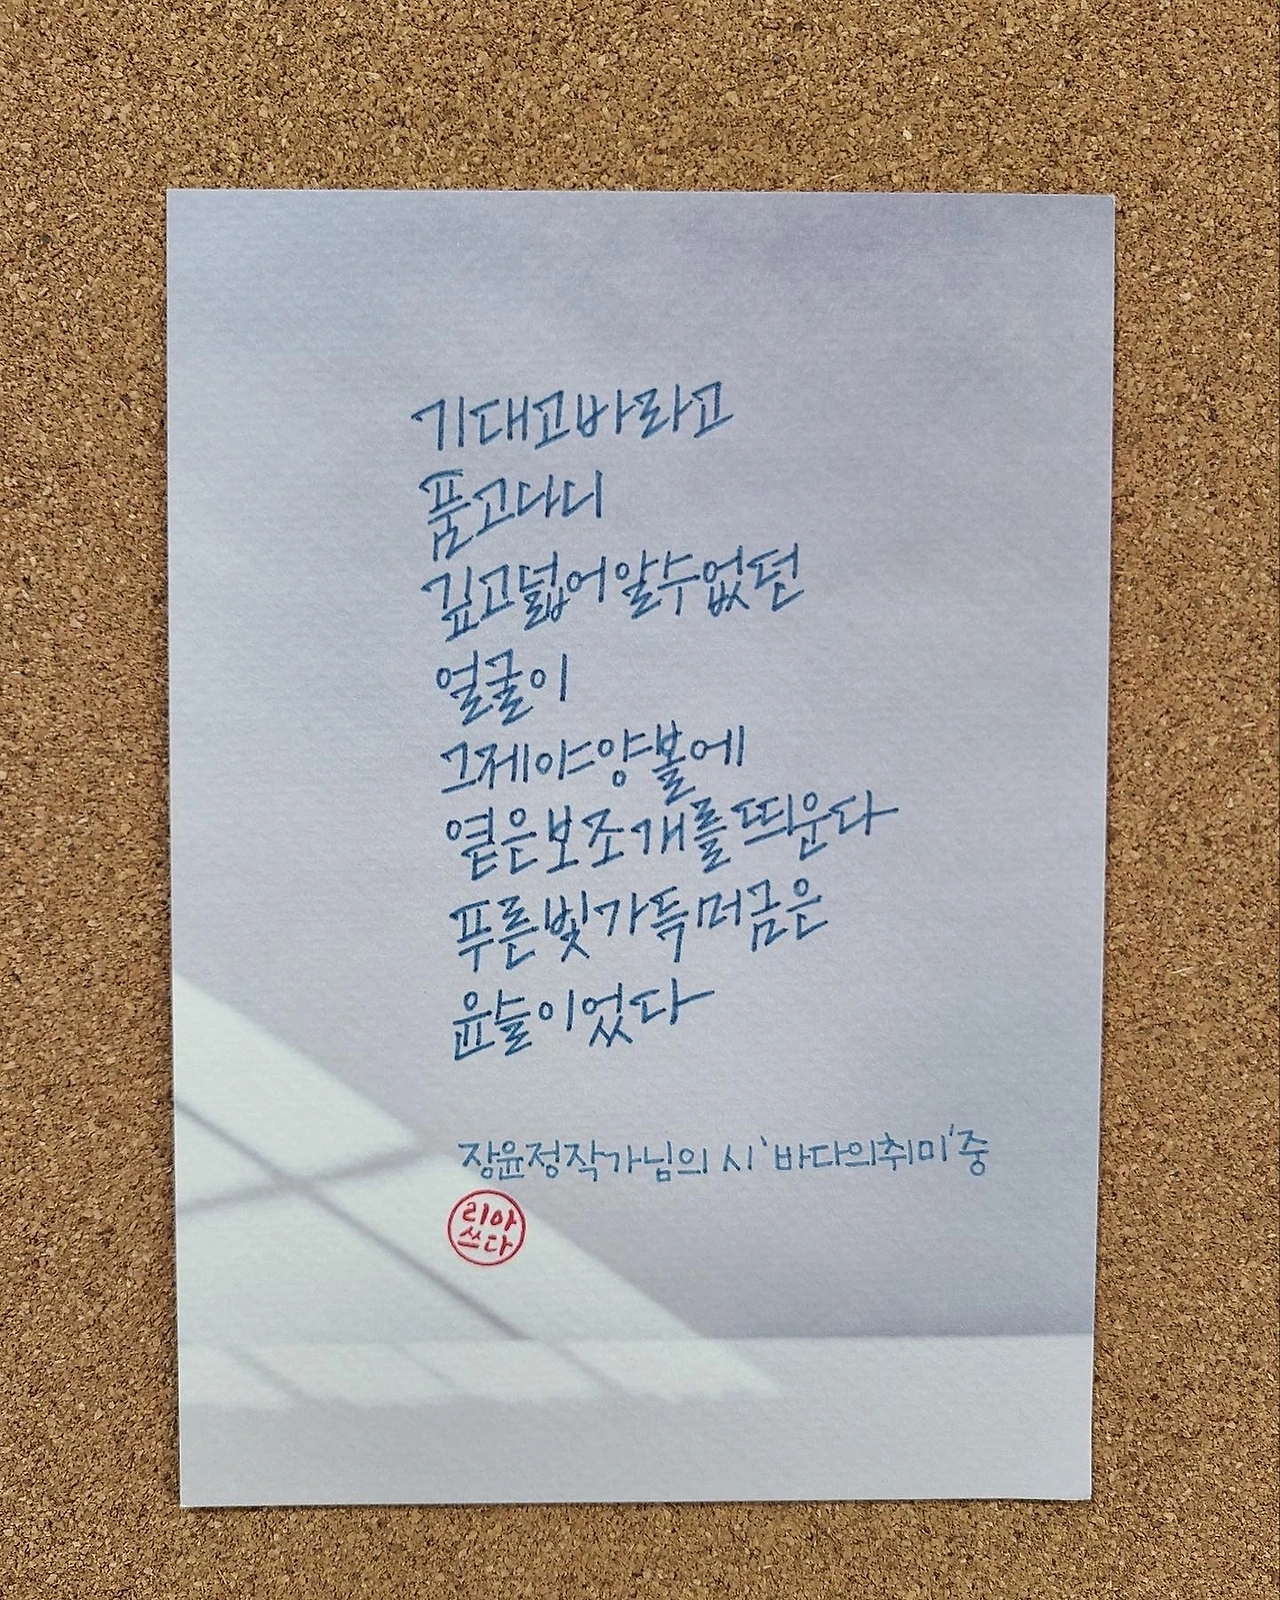 기대고바라고
품고나니
깊고넓어알수없던
얼굴이
그제야양볼에
옅은보조개를띄운다
푸른빛가득머금은
윤슬이었다
장윤정작가님의 시 '바다의취미' 중
리아
쓰다